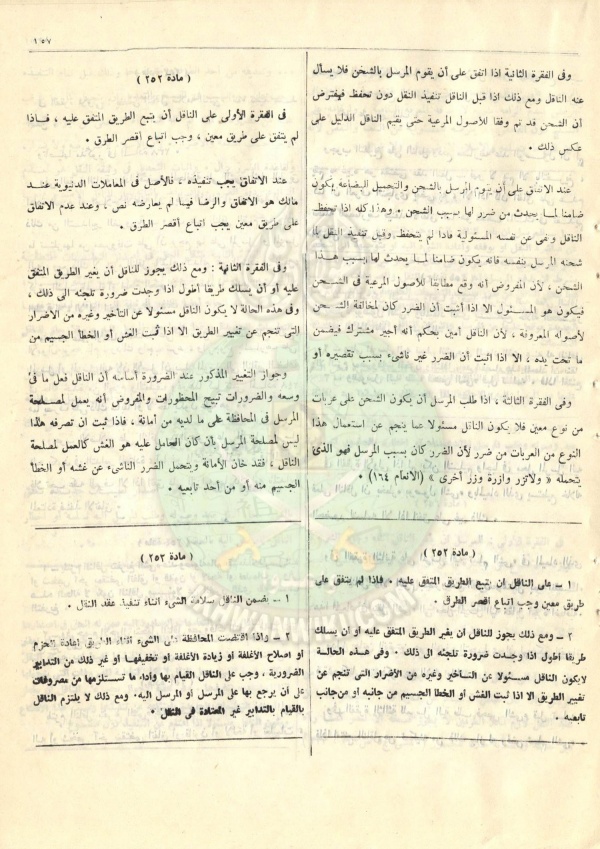 ١٥٧
وفى الفقرة الثانية اذا اتفق على أن يقوم المرسل بالشحن فلا يسأل
عنه الناقل ومع ذلك اذا قبل الناقل تنفيذ النقل دون تحفظ فيفترض
أن الشحن قد تم وفقا للأصول المرعية حتى يقيم الناقل الدليل على
عكس ذلك .
عند الاتفاق على أن يقوم المرسل بالشحن والتحميل للبضاعة يكون
ضامنا لما يحدث من ضرر لها بسبب الشحن . وهذا كله اذا تحفظ
الناقل ونفى عن نفسه المسئولية فاذا لم يتحفظ وقبل تنفيذ النقل بما
شحنه المرسل بنفسه فانه يكون ضامنا لما يحدث لها بسبب هذا
الشحن ، لأن المفروض أنه وقع مطابقا للأصول المرعية فى الشحن
فيكون هو المسئول الا اذا أثبت أن الضرر كان لمخالفة الشحن
لأصوله المعروفة ، لأن الناقل أمين بحكم أنه أجير مشترك فيضمن
ما تحت يده ، الا اذا اثبت أن الضرر غير ناشىء بسبب تقصيره أو
وفى الفقرة الثالثة ، اذا طلب المرسل أن يكون الشحن على عربات
من نوع معين فلا يكون الناقل مسئولا عما ينجم عن استعمال هذا
النوع من العربات من ضرر لأن الضرر كان بسبب المرسل فهو الذى
يتحمله « ولاتزر وازرة وزر أخرى » (الانعام ١٦٤) .
( مادة ٢٥٢ )
فى الفقرة الأولى على الناقل أن يتبع الطريق المتفق عليه ، فاذا
لم يتفق على طريق معين ، وجب اتباع أقصر الطرق .
عند الاتفاق يجب تنفيذه ، فالأصل فى المعاملات الدنيوية عند
مالك هو الاتفاق والرضا فيما لم يعارضه نص ، وعند عدم الاتفاق
على طريق معين يجب اتباع أقصر الطرق .
وفى الفقرة الثانية : ومع ذلك يجوز للناقل أن يغير الطريق المتفق
عليه أو أن يسلك طريقا أطول اذا وجدت ضرورة تلجئه الى ذلك ،
وفى هذه الحالة لا يكون الناقل مسئولا عن التأخير وغيره من الأضرار
التى تنجم عن تغيير الطريق الا اذا ثبت الغش أو الخطأ الجسيم من
وجواز التغيير المذكور عند الضرورة أساسه أن الناقل فعل ما فى
وسعه والضرورات تبيح المحظورات والمفروض أنه يعمل لمصلحة
المرسل فى المحافظة على ما لديه من أمانة ، فاذا ثبت ان تصرفه هذا
ليس لمصلحة المرسل بأن كان الحامل عليه هو الغش كالعمل لمصلحة
الناقل ، فقد خان الأمانة ويتحمل الضرر الناشىء عن غشه أو الخطأ
الجسيم منه أو من أحد تابعيه .
( مادة ٢٥٢ )
١ ـ على الناقل ان يتبع الطريق المتفق عليه . فاذا لم يتفق على
طريق معين وجب اتباع أقصر الطرق .
٢ ـ ومع ذلك يجوز للناقل أن يغير الطريق المتفق عليه او ان يسلك
طريقا اطول اذا وجدت ضرورة تلجئه الى ذلك . وفى هذه الحالة
لايكون الناقل مسئولا عن التأخير وغيره من الأضرار التى تنجم عن
تغيير الطريق الا اذا ثبت الغش أو الخطا الجسيم من جانبه او من جانب
تابعيه .
( مادة ٢٥٣ )
١ ـ يضمن الناقل سلامة الشىء اثناء تنفيذ عقد النقل .
٢ ـ واذا اقتضت المحافظة على الشىء أثناء الطريق إعادة الحزم
او اصلاح الأغلفة أو زيادة الأغلفة او تخفيفها او غير ذلك من التدابير
الضرورية ، وجب على الناقل القيام بها وأداء ما تستلزمها من مصروفات
على أن يرجع بها على المرسل أو المرسل اليه. ومع ذلك لا يلتزم الناقل
بالقيام بالتدابير غير المعتادة فى النقل .